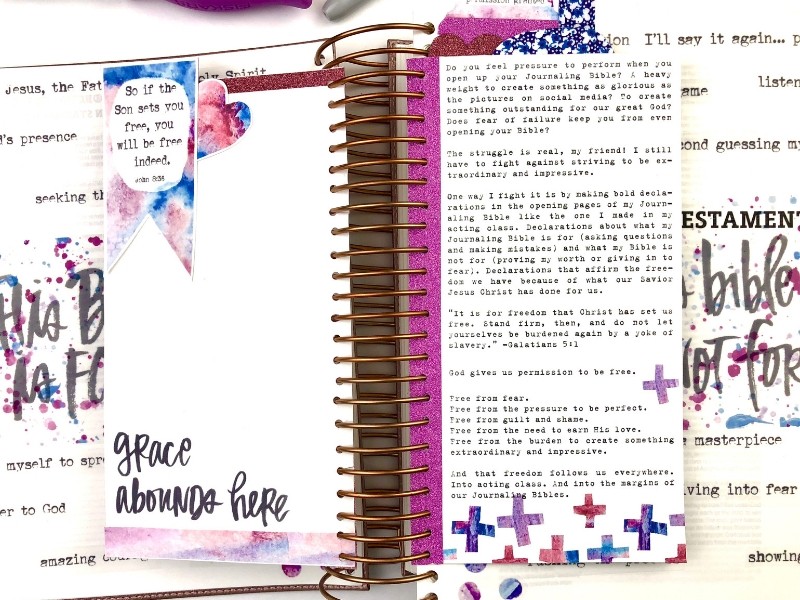 Jesus, the Fat
Holy Spirit
d's presence
seeking th
This B
is Fo
myself to spr
er to God
amazing cour
So if the
Son sets you
free, you
will be free
indeed.
John 8:36
grace
abounds here
Do you feel pressure to perform when you
open up your Journaling Bible? A heavy
weight to create something as glorious as
the pictures on social media? To create
something outstanding for our great God?
Does fear of failure keep you from even
opening your Bible?
The struggle is real, my friend! I still
have to fight against striving to be ex-
traordinary and impressive.
One way I fight it is by making bold decla-
rations in the opening pages of my Journ-
aling Bible like the one I made in my
acting class. Declarations about what my
Journaling Bible is for (asking questions
and making mistakes) and what my Bible is
not for (proving my worth or giving in to
fear). Declarations that affirm the free-
dom we have because of what our Savior
Jesus Christ has done for us.
"It is for freedom that Christ has set us
free. Stand firm, then, and do not let
yourselves be burdened again by a yoke of
slavery." -Galatians 5:1
God gives us permission to be free.
Free from fear.
Free from the pressure to be perfect.
Free from guilt and shame.
Free from the need to earn His love.
Free from the burden to create something
extraordinary and impressive.
And that freedom follows us everywhere.
Into acting class. And into the margins of
our Journaling Bibles.
ion I'll say it again... p
listen
ame
ond guessing my
ESTAMENT
bible
not for
masterpiece
iving into fear
showing